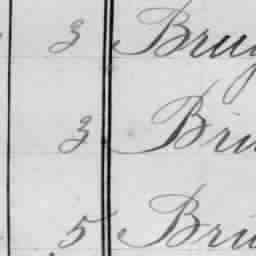 3 Brug
3 Bri
5 Bri